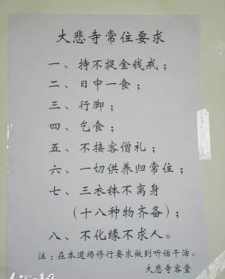 大悲寺常住要求
一、持不捉金钱戒；
二、日中一食；
三、行脚；
四、乞食；
五、不接客僧礼；
六、一切供养归常住；
七、三衣钵不离身
（十八种物齐备）；
八、不化缘不求人。
注：在本道场修行要求做到听话干活。
大悲寺客堂